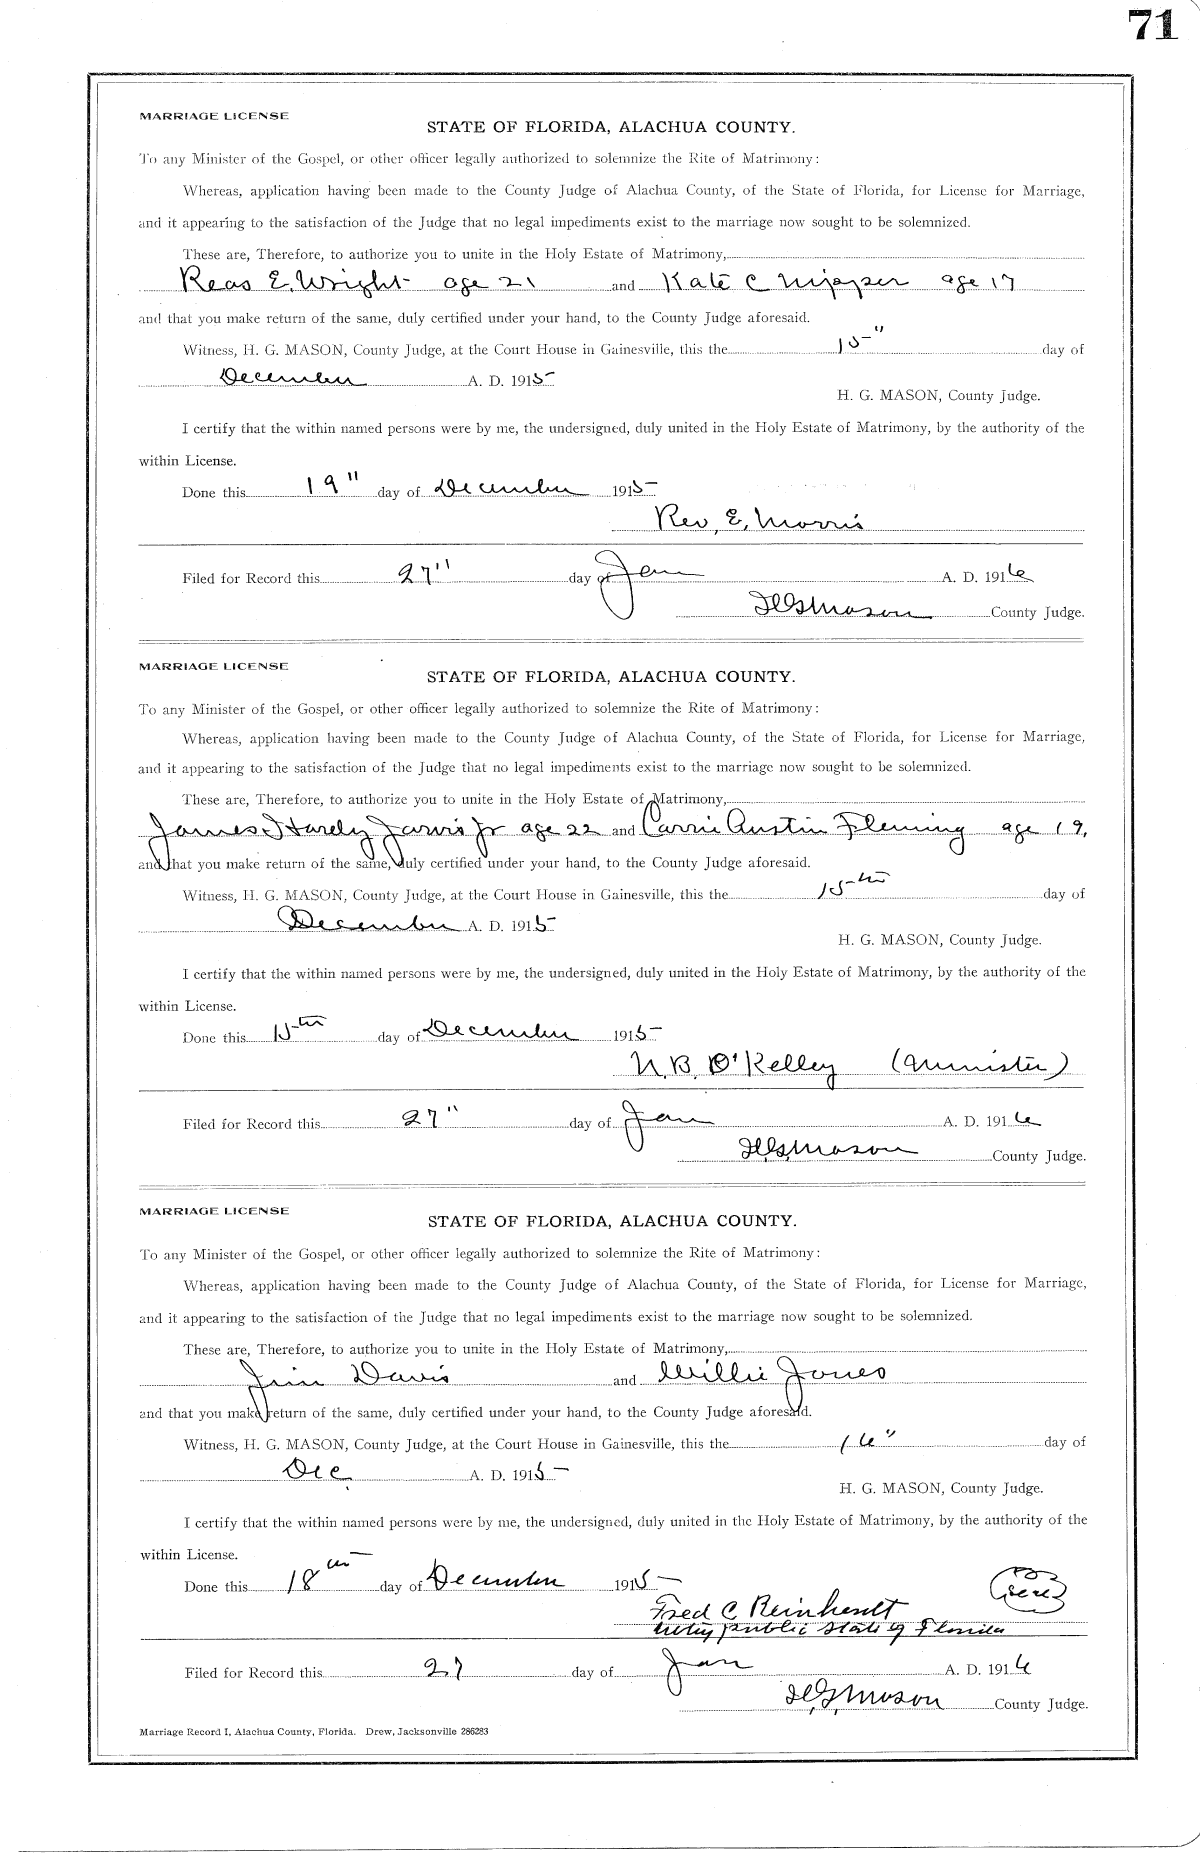 71
MARRIAGE LICENSE
STATE OF FLORIDA, ALACHUA COUNTY.
To any Minister of the Gospel, or other officer legally authorized to solemnize the Rite of Matrimony:
Whereas, application having been made to the County Judge of Alachua County, of the State of Florida, for License for Marriage,
and it appearing to the satisfaction of the Judge that no legal impediments exist to the marriage now sought to be solemnized.
These are, Therefore, to authorize you to unite in the Holy Estate of Matrimony,
Reas E. Wright age 21 and Kate C age 17
and that you make return of the same, duly certified under your hand, to the County Judge aforesaid.
Witness, H. G. MASON, County Judge, at the Court House in Gainesville, this the 15" day of
December A. D. 1915
H. G. MASON, County Judge.
I certify that the within named persons were by me, the undersigned, duly united in the Holy Estate of Matrimony, by the authority of the
within License.
Done this 19" day of December 1915
Rev, E, Morris
Filed for Record this 27" day of Jan A. D. 1916
H G Mason County Judge.
MARRIAGE LICENSE
STATE OF FLORIDA, ALACHUA COUNTY.
To any Minister of the Gospel, or other officer legally authorized to solemnize the Rite of Matrimony:
Whereas, application having been made to the County Judge of Alachua County, of the State of Florida, for License for Marriage,
and it appearing to the satisfaction of the Judge that no legal impediments exist to the marriage now sought to be solemnized.
These are, Therefore, to authorize you to unite in the Holy Estate of Matrimony,
James Hardy Jarvis Jr age 22 and Carrie Austin Fleming age 19,
and that you make return of the same, duly certified under your hand, to the County Judge aforesaid.
Witness, H. G. MASON, County Judge, at the Court House in Gainesville, this the 15th day of
December A. D. 1915
H. G. MASON, County Judge.
I certify that the within named persons were by me, the undersigned, duly united in the Holy Estate of Matrimony, by the authority of the
within License.
Done this 15th day of December 1915
N. B. O'Kelley (Minister)
Filed for Record this 27" day of Jan A. D. 1916
H. G. Mason County Judge.
MARRIAGE LICENSE
STATE OF FLORIDA, ALACHUA COUNTY.
To any Minister of the Gospel, or other officer legally authorized to solemnize the Rite of Matrimony:
Whereas, application having been made to the County Judge of Alachua County, of the State of Florida, for License for Marriage,
and it appearing to the satisfaction of the Judge that no legal impediments exist to the marriage now sought to be solemnized.
These are, Therefore, to authorize you to unite in the Holy Estate of Matrimony,
Jim Davis and Willie Jones
and that you make return of the same, duly certified under your hand, to the County Judge aforesaid.
Witness, H. G. MASON, County Judge, at the Court House in Gainesville, this the 16" day of
Dec A. D. 1915
H. G. MASON, County Judge.
I certify that the within named persons were by me, the undersigned, duly united in the Holy Estate of Matrimony, by the authority of the
within License.
Done this 18th day of December 1915
Fred C Reinhardt
Notary public State of Florida
Filed for Record this 27 day of Jan A. D. 1916
H, G, Mason County Judge.
Marriage Record I, Alachua County, Florida. Drew, Jacksonville 286283